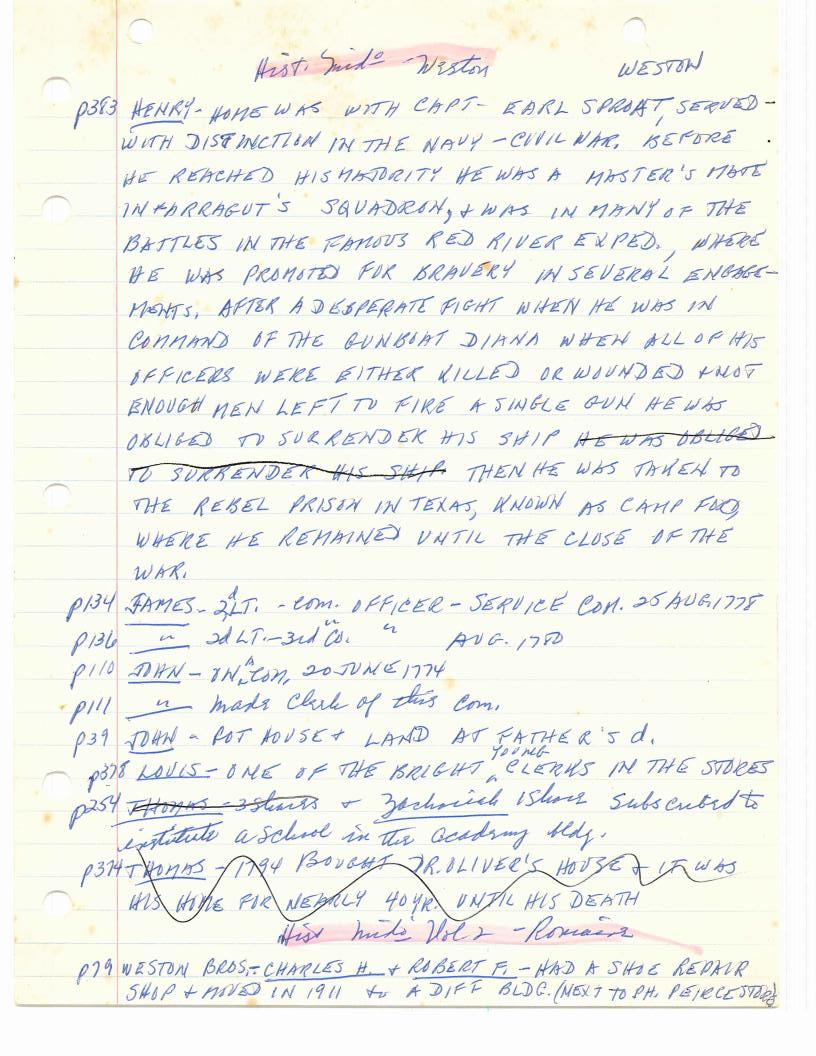 Hist. Mido - Weston WESTON
p383 HENRY - HOME WAS WITH CAPT - EARL SPROAT, SERVED -
WITH DISTINCTION IN THE NAVY - CIVIL WAR. BEFORE
HE REACHED HIS MAJORITY HE WAS A MASTER'S MATE
IN FARRAGUT'S SQUADRON, & WAS IN MANY OF THE
BATTLES IN THE FAMOUS RED RIVER EXPED., WHERE
HE WAS PROMOTED FOR BRAVERY IN SEVERAL ENGAGE-
MENTS. AFTER A DESPERATE FIGHT WHEN HE WAS IN
COMMAND OF THE GUNBOAT DIANA WHEN ALL OF HIS
OFFICERS WERE EITHER KILLED OR WOUNDED & NOT
ENOUGH MEN LEFT TO FIRE A SINGLE GUN HE WAS
OBLIGED TO SURRENDER HIS SHIP HE WAS OBLIGED
TO SURRENDER HIS SHIP THEN HE WAS TAKEN TO
THE REBEL PRISON IN TEXAS, KNOWN AS CAMP FORD,
WHERE HE REMAINED UNTIL THE CLOSE OF THE
WAR.
p134 JAMES - 2d LT. - com. OFFICER - SERVICE COM. 25 AUG. 1778
p136 " 2d LT. - 3rd Co. " " AUG. 1780
p110 JOHN - ON A Com, 20 JUNE 1774
p111 " made Clerk of this com.
p39 JOHN - GOT HOUSE & LAND AT FATHER'S d.
p378 LOUIS - ONE OF THE BRIGHT YOUNG CLERKS IN THE STORES
p254 THOMAS - 3 shares & Zachariah 1 Share Subscribed to
institute a School in the academy bldg.
p374 THOMAS - 1794 BOUGHT DR. OLIVER'S HOUSE & IT WAS
HIS HOME FOR NEARLY 40 YR. UNTIL HIS DEATH
Hist Mido Vol 2 - Romaine
p79 WESTON BROS. - CHARLES H. & ROBERT F. - HAD A SHOE REPAIR
SHOP & MOVED IN 1911 to A DIFF BLDG. (NEXT TO PH. PEIRCE STORE)